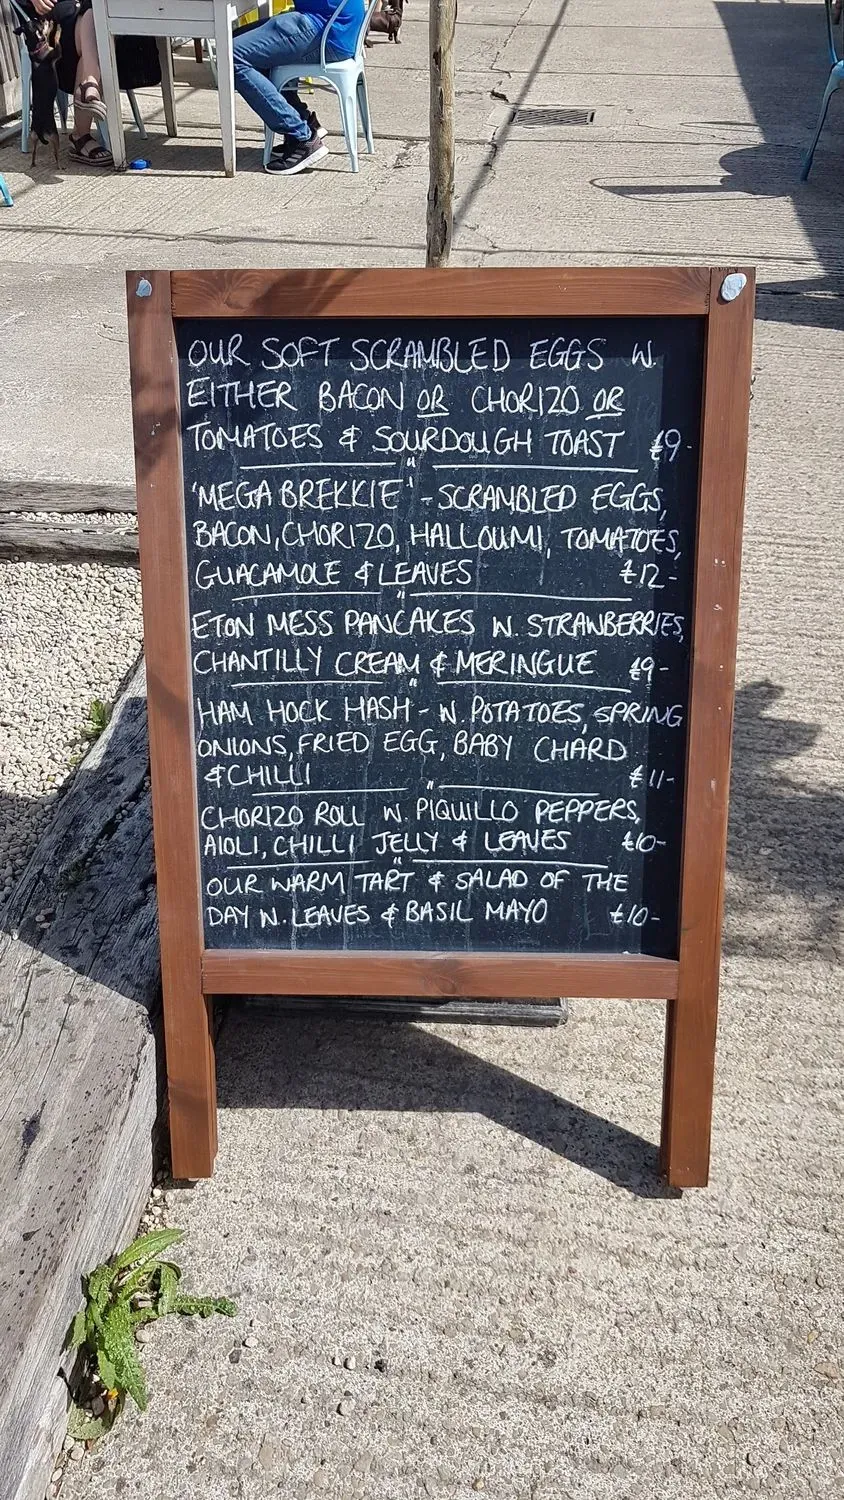 OUR SOFT SCRAMBLED EGGS W.
EITHER BACON OR CHORIZO OR
TOMATOES & SOURDOUGH TOAST £9-
'MEGA BREKKIE' - SCRAMBLED EGGS,
BACON, CHORIZO, HALLOUMI, TOMATOES,
GUACAMOLE & LEAVES £12-
ETON MESS PANCAKES W. STRAWBERRIES,
CHANTILLY CREAM & MERINGUE £9-
HAM HOCK HASH - W. POTATOES, SPRING
ONIONS, FRIED EGG, BABY CHARD
& CHILLI £11-
CHORIZO ROLL W. PIQUILLO PEPPERS,
AIOLI, CHILLI JELLY & LEAVES £10-
OUR WARM TART & SALAD OF THE
DAY W. LEAVES & BASIL MAYO £10-